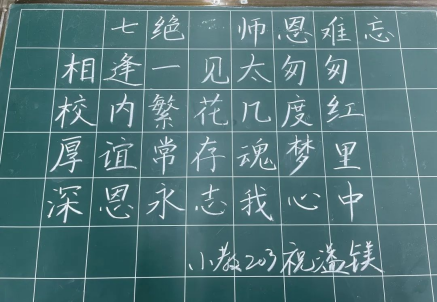 七绝·师恩难忘
相逢一见太匆匆
校内繁花几度红
厚谊常存魂梦里
深恩永志我心中
小教203祝溢镁